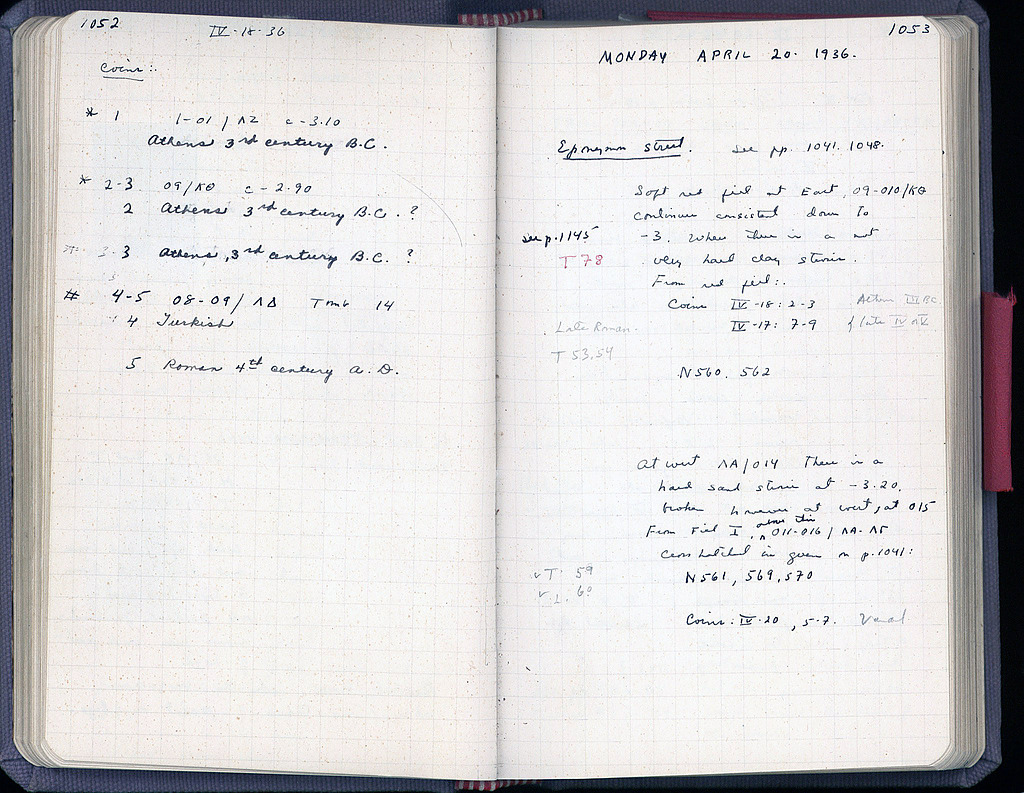 1052
IV·18·36
Coins:.
* 1 1-01/ΛΖ c -3.10
Athens 3rd century B.C.
* 2-3 09/ΚΘ c -2.90
2 Athens 3rd century B.C. ?
3 Athens, 3rd century B.C. ?
# 4-5 08-09/ΛΔ Tomb 14
4 Turkish
5 Roman 4th century A.D.
1053
MONDAY APRIL 20. 1936.
Eponymon street. See pp. 1041. 1048.
Soft red fiel at East, 09-010/ΚΘ
continues consistent down to
see p.1145
-3. Where there is a not
T 78
very hard clay strosis.
From red fiel:.
Coins IV-18: 2-3 Athens III BC.
IV-17: 7-9 of late IV or V
Late Roman.
T 53,54
N560. 562
At west ΛΑ/014 There is a
hard sand strosis at -3.20,
broken however at west, at 015
From Fiel I, above this 011-016/ΛΑ-ΛΓ
Cross hatched in green on p.1041:
N561, 569, 570
✓T. 59
✓ 60
Coins: IV·20, 5-7.